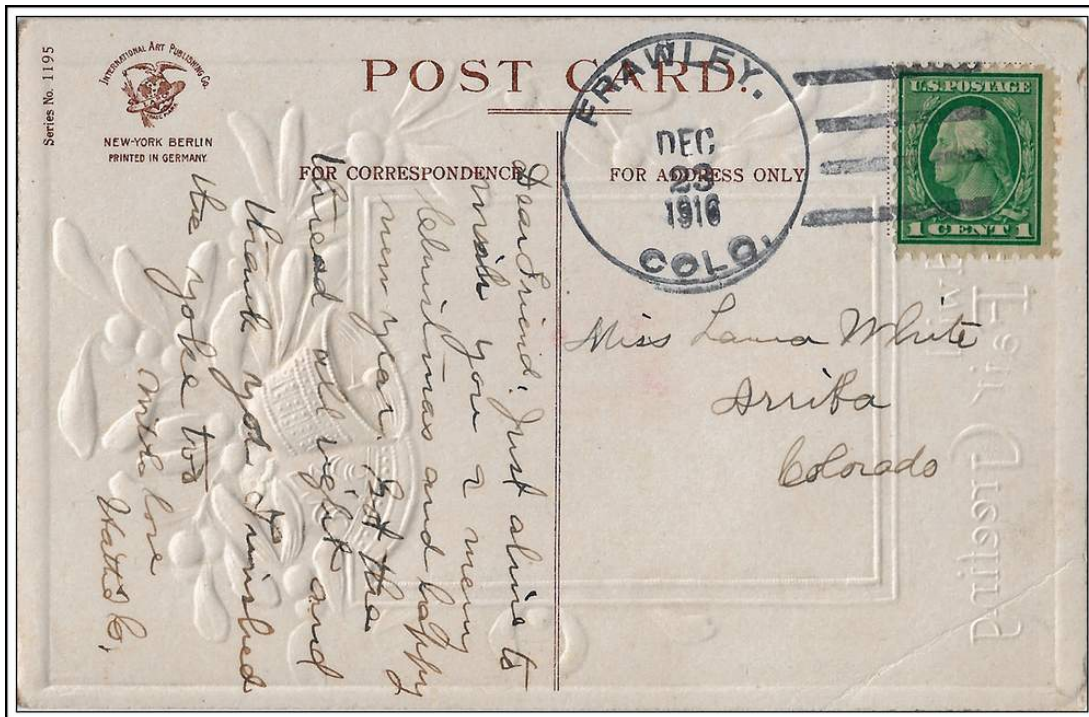 Series No. 1195
INTERNATIONAL ART PUBLISHING Co.
NEW-YORK BERLIN
PRINTED IN GERMANY.
POST CARD.
FOR CORRESPONDENCE
FOR ADDRESS ONLY
FRAWLEY.
DEC
23
1916
COLO.
U.S. POSTAGE
1 CENT 1
Dear Friend: Just a line to
wish you a merry
christmas and happy
new year. Got the
thread all right and
thank you. I finished
the yoke too
With love
Miss Laura White
Arriba
Colorado